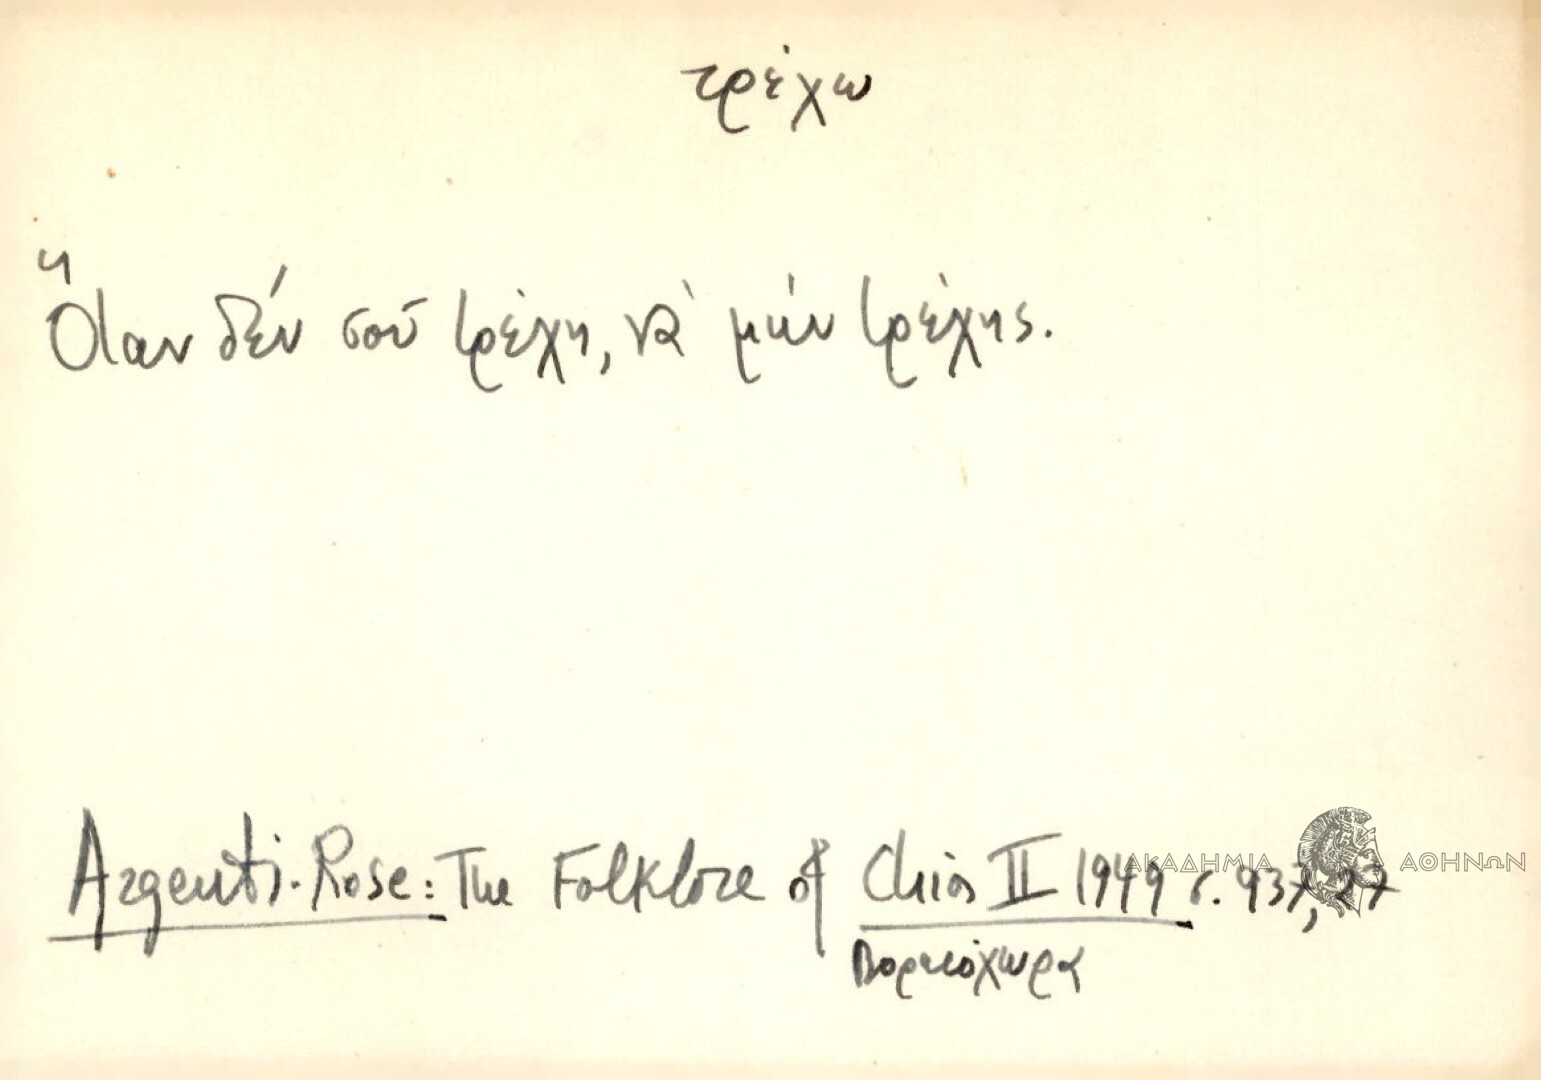 τρέχω
Ὅταν δέν σοῦ τρέχη, νὰ μήν τρέχης.
Argenti-Rose: The Folklore of Chios II 1949 σ. 937, 27
ΑΚΑΔΗΜΙΑ ΑΘΗΝΩΝ
Βορειόχωρα